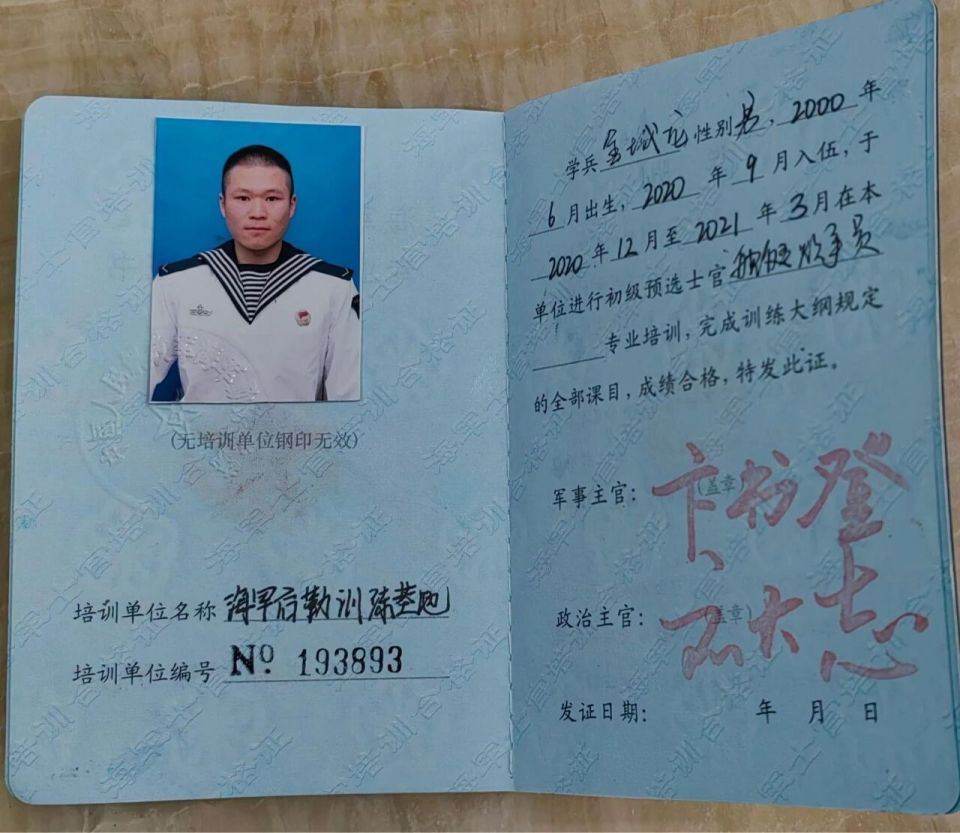 (无培训单位钢印无效)
培训单位名称 海军后勤训练基地
培训单位编号 Nº 193893
学兵 金城龙 性别 男, 2000 年
6 月出生, 2020 年 9 月入伍, 于
2020 年 12 月至 2021 年 3 月在本
单位进行初级预选士官 炊事员
专业培训, 完成训练大纲规定
的全部课目, 成绩合格, 特发此证。
军事主官: (盖章) 卞书登
政治主官: (盖章) 大志
发证日期: 年 月 日
海军士官培训合格证